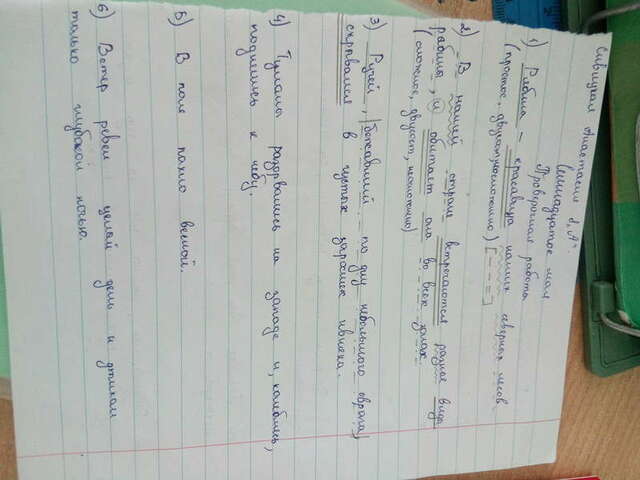 Сивицкая Анастасия 8 "А".
Семнадцатое мая
Проверочная работа
1) Рябина – красавица наших северных лесов
(простое, двусост, неосложнено) [– – – =]
2) В нашей стране встречаются разные виды
рябины, и обитает она во всех зонах
(сложное, двусост, неосложнено)
3) Ручей, |бежавший по дну небольшого оврага,|
скрывался в густых зарослях ивняка.
4) Туманы разорвались на западе и, колеблясь,
поднялись к небу.
5) В поле пахло весной.
6) Ветер ревел целый день и утихал
только глубокой ночью.